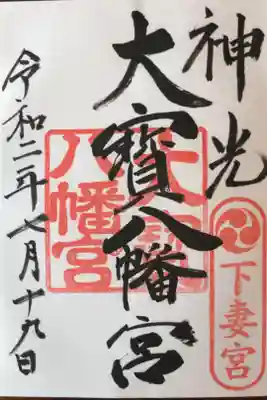 神光
大寳八幡宮
令和二年七月十九日
大寳
八幡宮
下妻宮